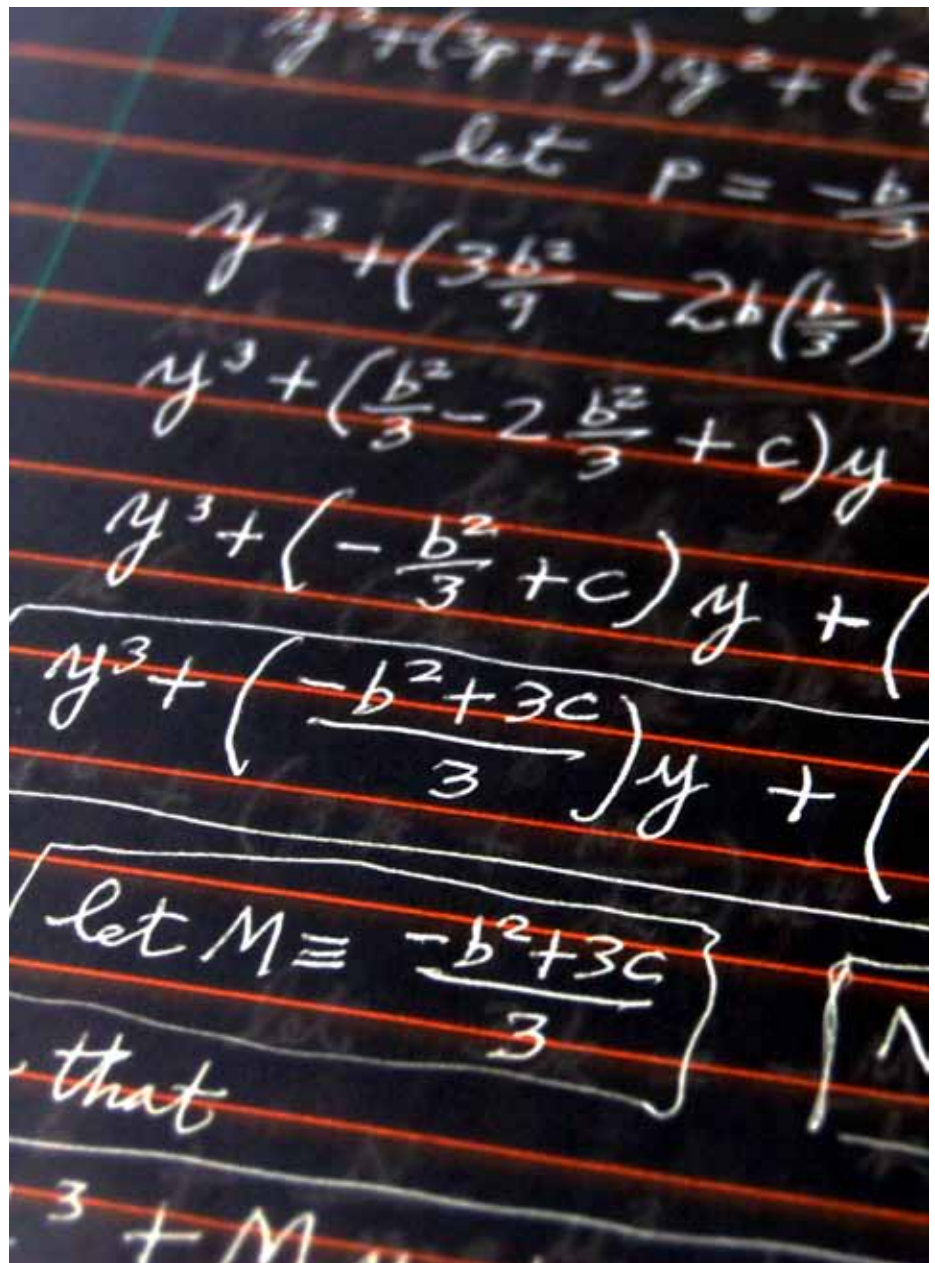 y³+(3p+b)y²+(3
let p = -b/3
y³+(3b²/9 - 2b(b/3)+
y³+(b²/3 - 2 b²/3 + c)y
y³+(-b²/3 + c)y + (
y³+(-b²+3c/3)y + (
let M ≡ -b²+3c/3
that
³ + M